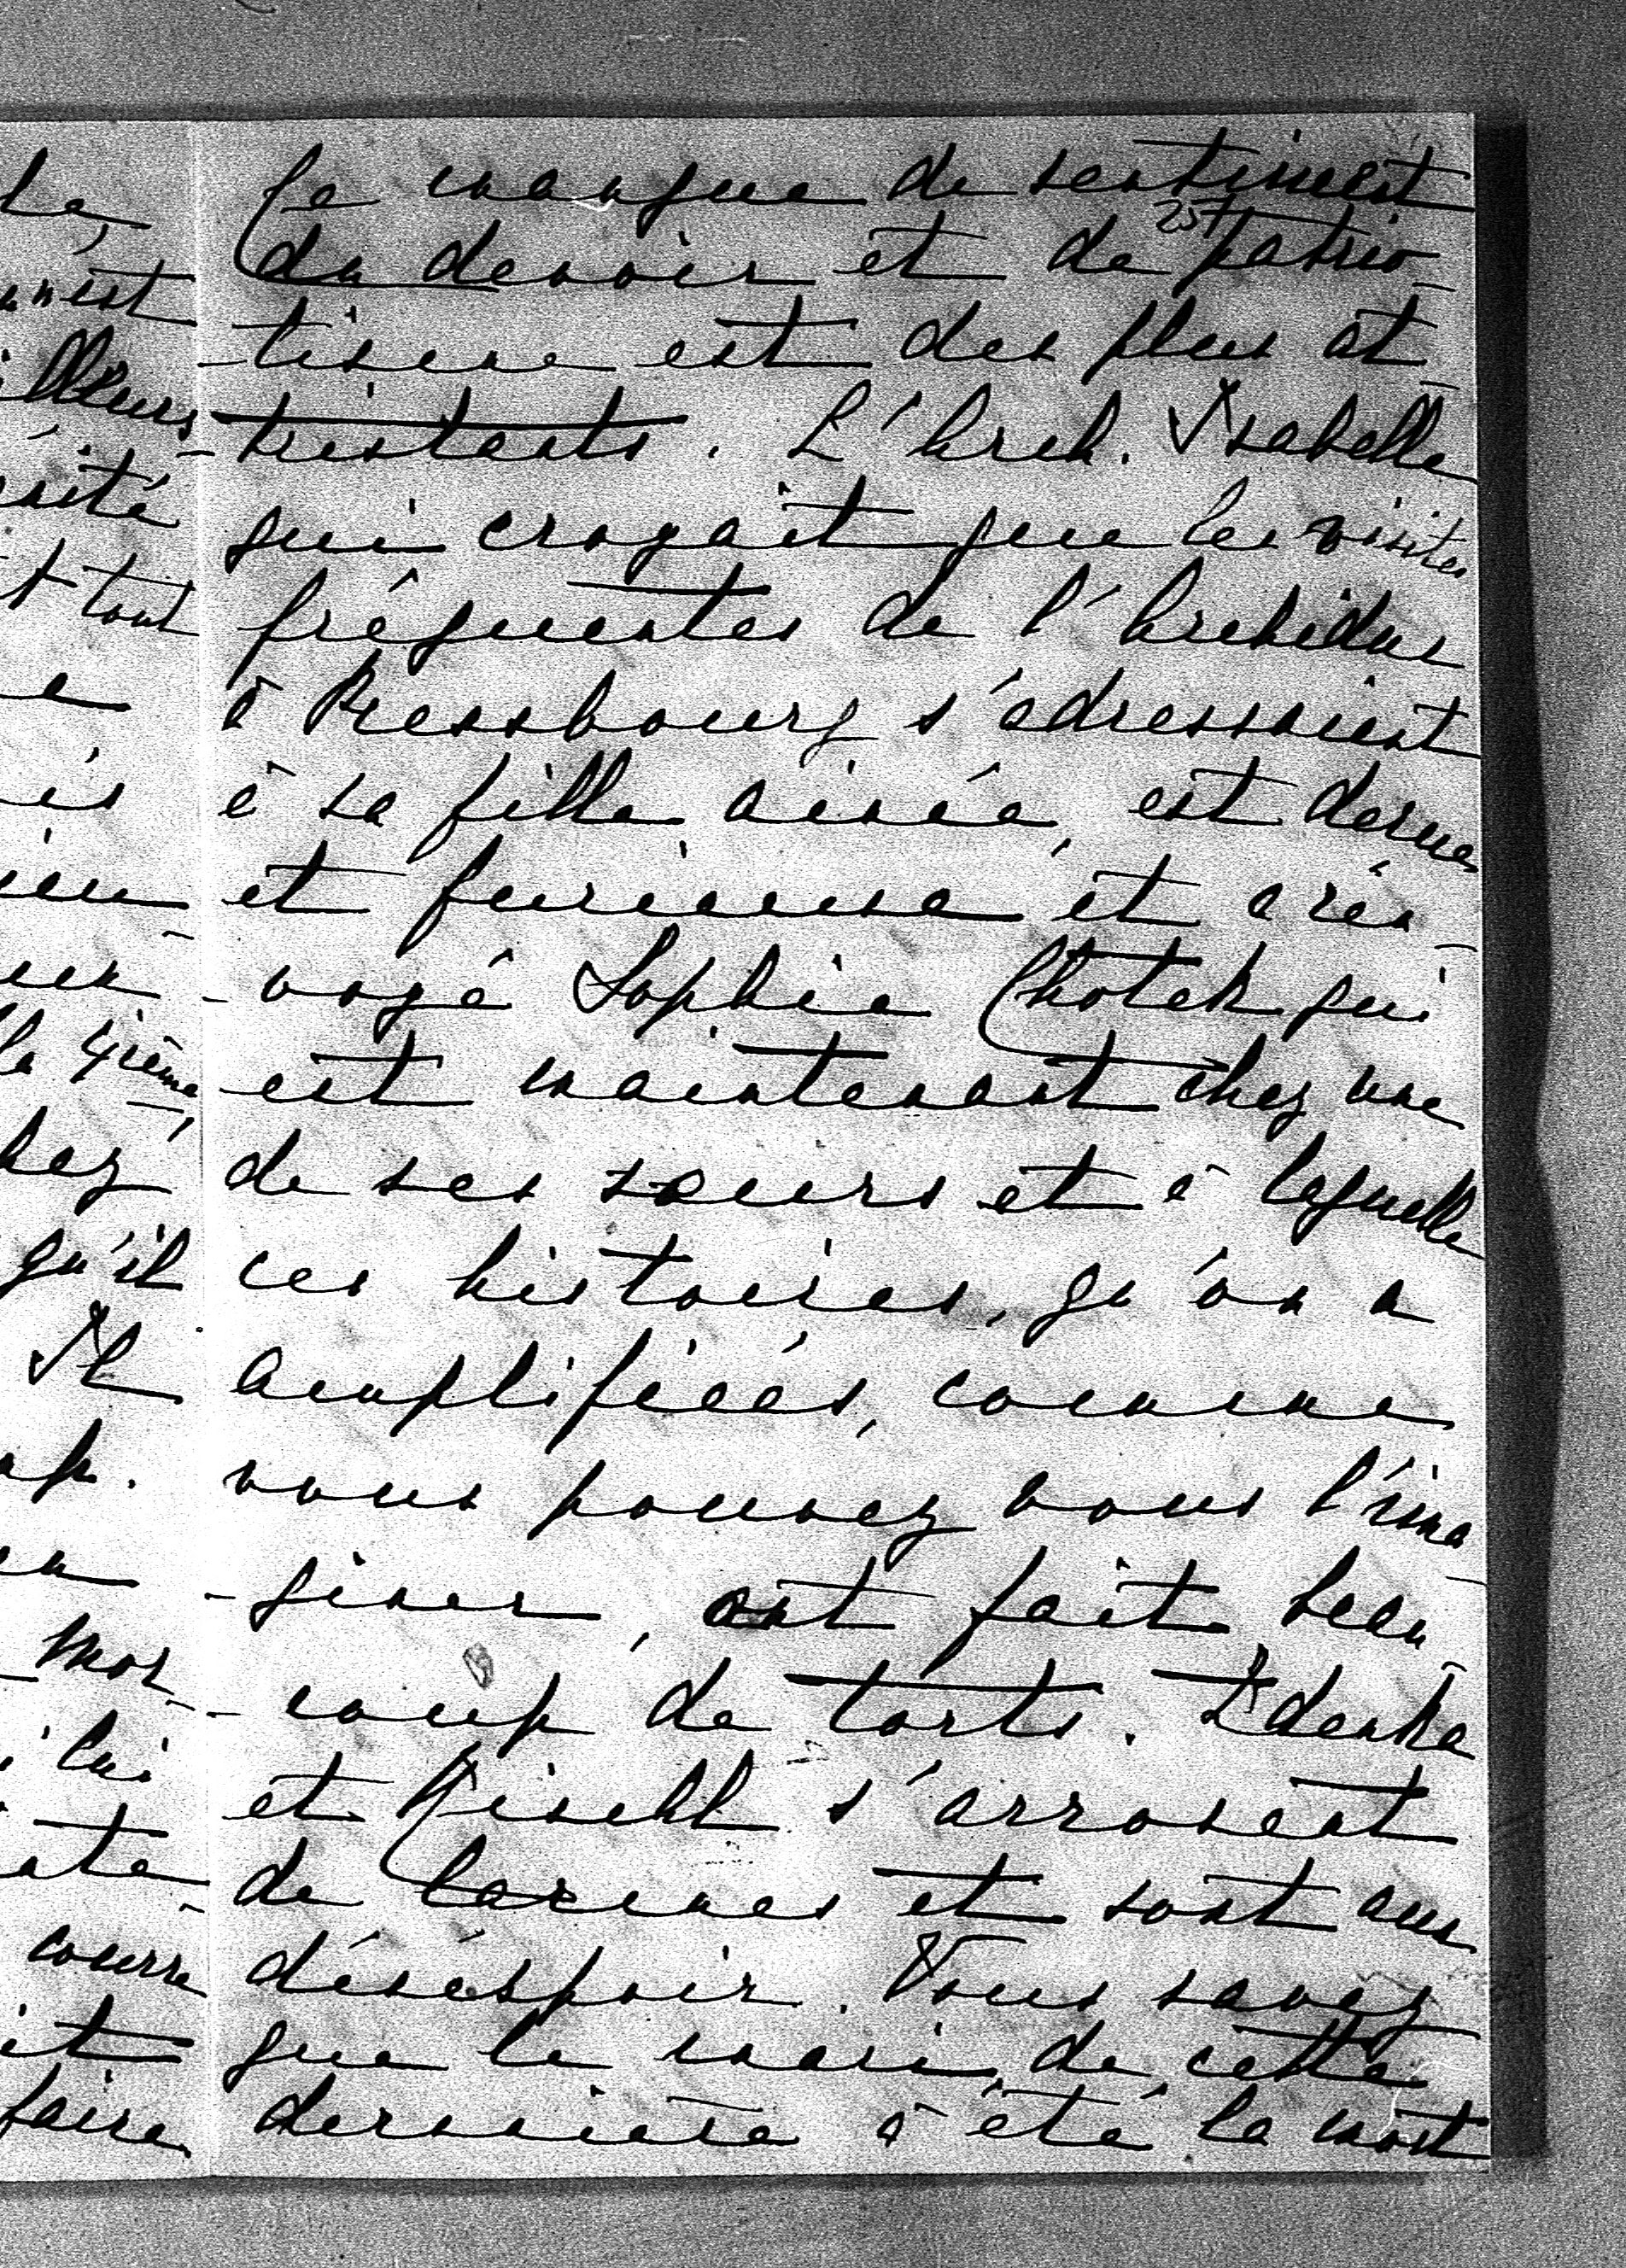 Ce manque de sentiment
257
du devoir et de patrio-
-tisme est des plus at-
-tristants. L'Arch. Isabelle
qui croyait que les visites
fréquentes de l'Archiduc
à Pressbourg s'adressaient
à sa fille ainée, est devenue
et furieuse et a ren-
-voyé Sophie Chotek qui
est maintenant chez une
de ses sœurs et à laquelle
ces histoires, qu'on a
amplifiées, comme
vous pouvez vous l'ima-
-giner, ont fait beau-
-coup de torts. Zdenka
et Riselil s'arrosent
de larmes et sont au
désespoir. Vous savez
que le mari de cette
dernière a été la mort
n'est
illeurs
t tout
la 4ième
chez
qu'il
Il
lui
courre
faire